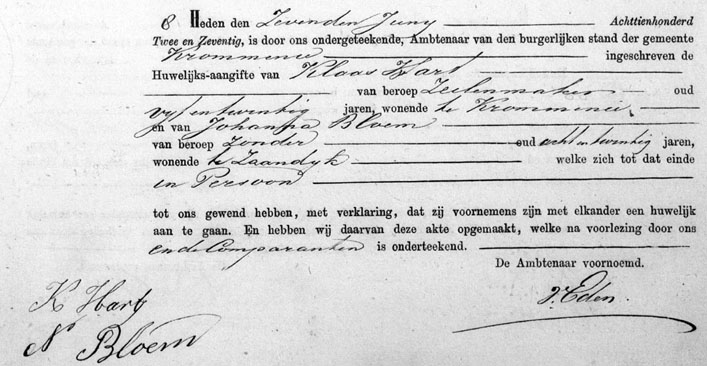 6 Heden den Zevenden Juny Achttienhonderd
Twee en Zeventig, is door ons ondergeteekende, Ambtenaar van den burgerlijken stand der gemeente
Krommenie ingeschreven de
Huwelijks-aangifte van Klaas Hart
van beroep Zeilenmaker oud
vyf en twintig jaren, wonende te Krommenie
en van Johanna Bloem
van beroep Zonder oud acht en twintig jaren,
wonende te Zaandyk welke zich tot dat einde
in Persoon
tot ons gewend hebben, met verklaring, dat zij voornemens zijn met elkander een huwelijk
aan te gaan. En hebben wij daarvan deze akte opgemaakt, welke na voorlezing door ons
en de Comparanten is onderteekend.
De Ambtenaar voornoemd.
K Hart
Eden
N Bloem